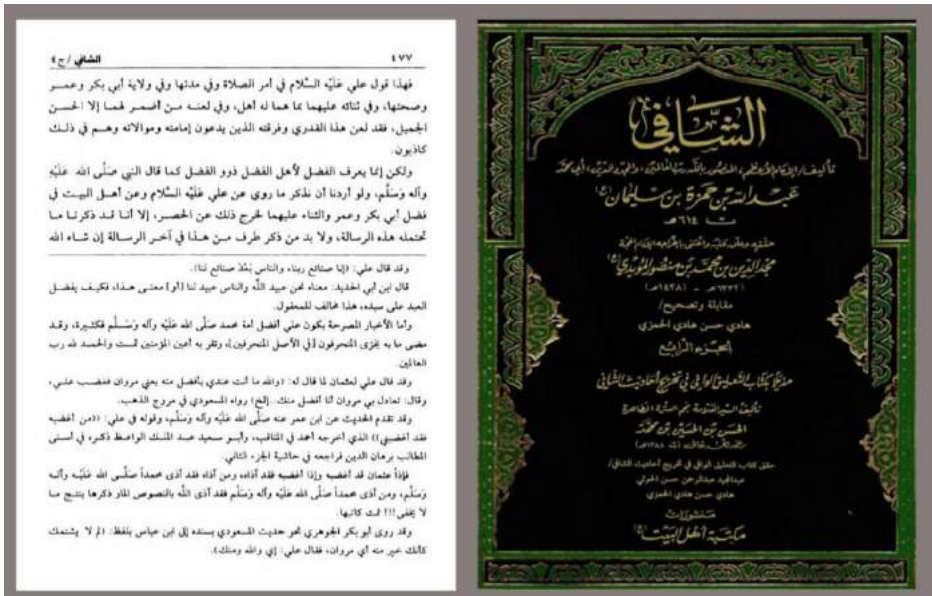 ٤٧٧
الشافي / ج٤
فهذا قول علي عَلَيْه السَّلام في أمر الصلاة وفي مدتها وفي ولاية أبي بكر وعمـــر
وصحتها، وفي ثنائه عليهما بما هما له أهل، وفي لعنـه مـن أضمـر لهمـا إلا الحسـن
الجميل، فقد لعن هذا القدري وفرقته الذين يدعون إمامته وموالاته وهــم في ذلــك
كاذبون.
ولكن إنما يعرف الفضل لأهل الفضل ذوو الفضل كما قال النبي صَلَّى الله عَلَيْهِ
وآله وَسَلَّم، ولو أردنا أن نذكر ما روي عن علي عَلَيْه السَّلام وعن أهـل البيـت في
فضل أبي بكر وعمر والثناء عليهما لخرج ذلك عن الحصـر، إلا أنـا قـد ذكرنـا مـا
تحتمله هذه الرسالة، ولا بد من ذكر طرف مـن هـذا في آخـر الرسـالة إن شـاء الله
وقد قال علي: (إنا صنائع ربنا، والناس بَعْدُ صنائع لنا).
قال ابن أبي الحديد: معناه نحن عبيد اللَّه والناس عبيد لنا [أو] معنـى هـذا، فكيـف يفضـل
العبد على سيده، هذا مخالف للمعقول.
وأما الأخبار المصرحة بكون علي أفضل أمة محمد صَلَّى الله عَلَيْه وآله وَسَـلَّم فكثـيرة، وقـد
مضى ما به يخزى المنحرفون [في الأصل المنحرفين]، وتقر به أعين المؤمنين تمـت والحمـد لله رب
العالمين.
وقد قال علي لعثمان لما قال له: (والله ما أنت عندي بأفضل منه يعني مروان فغضـب علـي،
وقال: تعادل بي مروان أنا أفضل منك..إلخ) رواه المسعودي في مروج الذهب.
وقد تقدم الحديث عن ابن عمر عنه صَلَّى الله عَلَيْه وآله وَسَلَّم، وقوله في علي: ((من أغضبه
فقد أغضبني)) الذي أخرجه أحمد في المناقب، وأبـو سـعيد عبـد الملـك الواعـظ ذكـره في أسـنى
المطالب برهان الدين فراجعه في حاشية الجزء الثاني.
فإذاً عثمان قد أغضبه وإذا أغضبه فقد آذاه، ومن آذاه فقد آذى محمداً صَلَّـى الله عَلَيْـه وآلـه
وَسَلَّم، ومن آذى محمداً صَلَّى الله عَلَيْه وآله وَسَلَّم فقد آذى اللَّه بالنصوص المار ذكرها ينتـج مـا
لا يخفى!!! تمت كاتبها.
وقد روى أبو بكر الجوهري نحو حديث المسعودي بسنده إلى ابن عباس بلفظ: (لم لا يشتمك
كأنك خير منه أي مروان، فقال علي: إي والله ومنك).
الشافي
تأليف الإمام الأعظم المنصور بالله رب العالمين، والمجدد للدين، أبي محمد
عبدالله بن حمزة بن سليمان (ع)
ت ٦١٤ هـ
مجدالدين بن محمد بن منصور المؤيدي (ع)
(١٣٣٢هـ - ١٤٢٨هـ)
مقابلة وتصحيح/
هادي حسن هادي الحمزي
الجزء الرابع
مذيلاً بكتاب التعليق الوافي في تخريج أحاديث الشافي
تأليف السيد العلامة نجم العترة الطاهرة
الحسن بن الحسين بن محمد
حقق كتاب التعليق الوافي في تخريج أحاديث الشافي/
عبدالمجيد عبدالرحمن حسن الحوثي
هادي حسن هادي الحمزي
منشورات
مكتبة أهل البيت (ع)